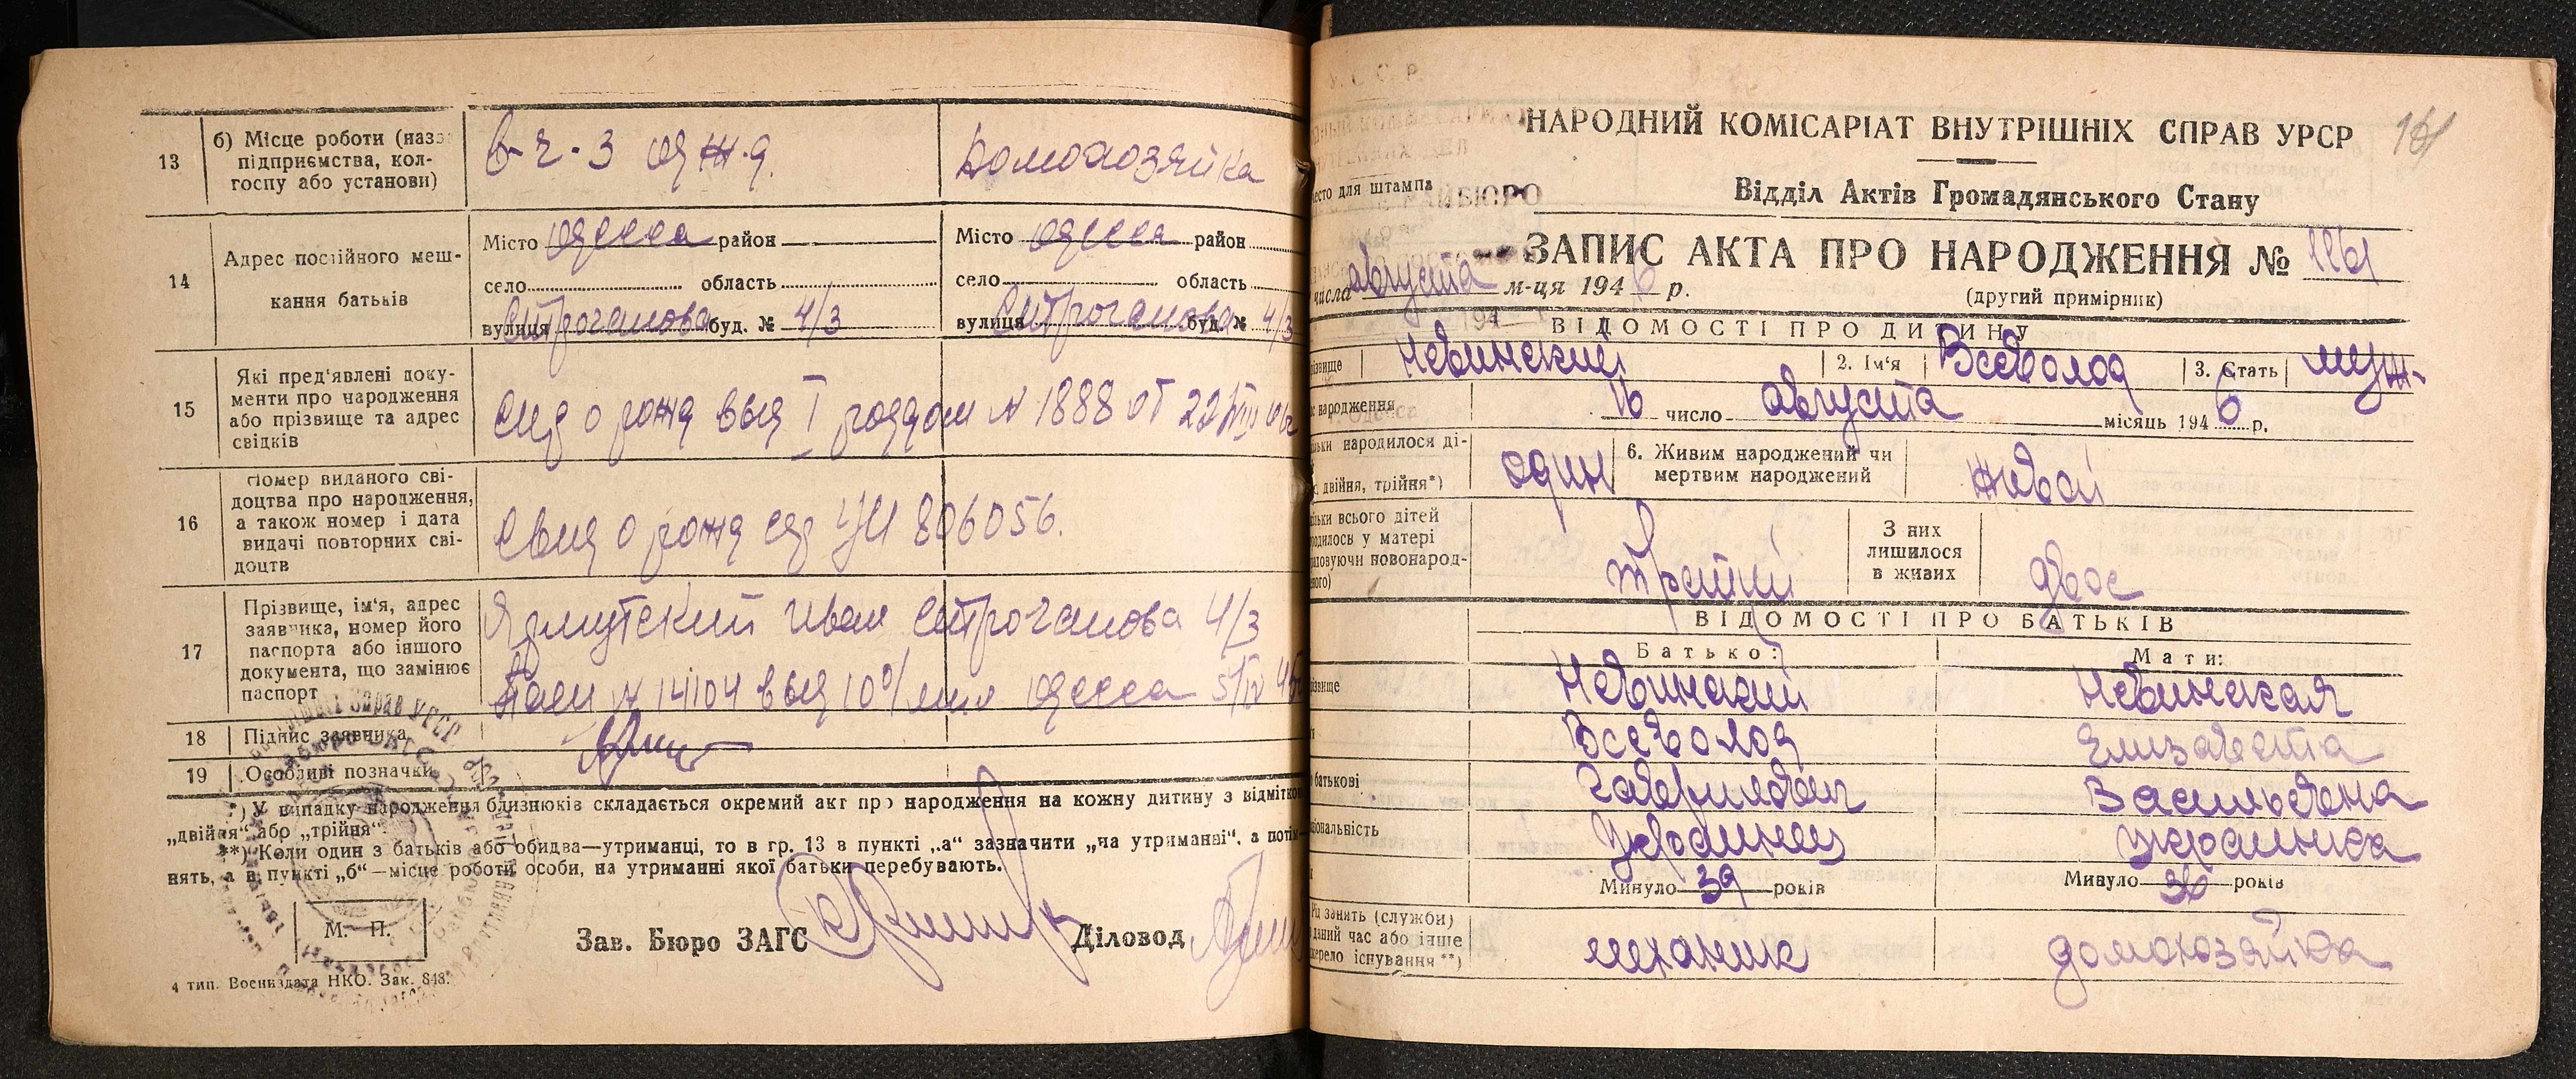 13
б) Місце роботи (назв
підприємства, кол-
госпу або установи)
в-ч-3 од ж.д.
Домохозяйка
14
Адрес постійного меш-
кання батьків
Місто Одесса район
село область
вулиця Строганова буд. № 4/3
Місто Одесса район
село область
вулиця Строганова буд. № 4/3
15
Які пред'явлені доку-
менти про народження
або прізвище та адрес
свідків
о рожд выд I роддом N 1888 от 22/VIII
16
Номер виданого сві-
доцтва про народження,
а також номер і дата
видачі повторних сві-
доцтв
Свид о рожд 806056.
17
Прізвище, ім'я, адрес
заявника, номер його
паспорта або іншого
документа, що замінює
паспорт
Иван Строганова 4/3
N 14104 выд 10 о/мил Одесса 5/IV
18
Підпис заявника
19
Особливі позначки
*) У випадку народження близнюків складається окремий акт про народження на кожну дитину з відміткою
„двійня" або „трійня".
**) Коли один з батьків або обидва—утриманці, то в гр. 13 в пункті „а" зазначити „на утриманні", а потім
нять, а в пункті „б"—місце роботи особи, на утриманні якої батьки перебувають.
М. П.
Зав. Бюро ЗАГС
Діловод
4 тип. Воениздата НКО. Зак. 848.
161
НАРОДНИЙ КОМІСАРІАТ ВНУТРІШНІХ СПРАВ УРСР
есто для штампа
Відділ Актів Громадянського Стану
ЗАПИС АКТА ПРО НАРОДЖЕННЯ № 1161
числа августа м-ця 1946 р.
(другий примірник)
ВІДОМОСТІ ПРО ДИТИНУ
ізвище Невинский 2. Ім'я Всеволод 3. Стать муж-
с народження 16 число августа місяць 1946 р.
ільки народилося ді-
двійня, трійня*)
один
6. Живим народжений чи
мертвим народжений
живой
ільки всього дітей
родилось у матері
раховуючи новонарод-
еного)
третий
З них
лишилося
в живих
двое
ВІДОМОСТІ ПРО БАТЬКІВ
Батько:
Мати:
ізвище Невинский Невинская
Всеволод Елизавета
батькові Гаврилович Васильевна
ціональність Украинец Украинка
Минуло 39 років
Минуло 36 років
Рід занять (служби)
даний час або інше
жерело існування **)
механик
домохозяйка